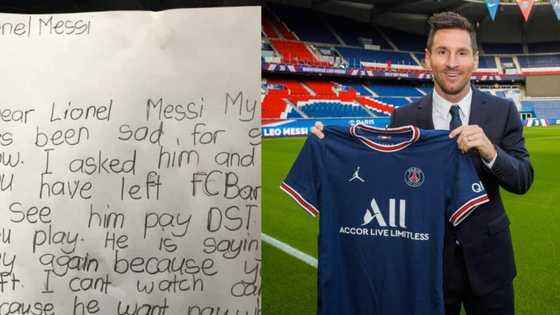 nel Messi
ear Lionel Messi My
been sad, for
ow. I asked him and
have left FCBar
See him pay DST
u play. He is sayin
again because y
ft. I cant watch ca
cause he want pay
LEO MESSI
PARIS
ALL
ACCOR LIVE LIMITLESS